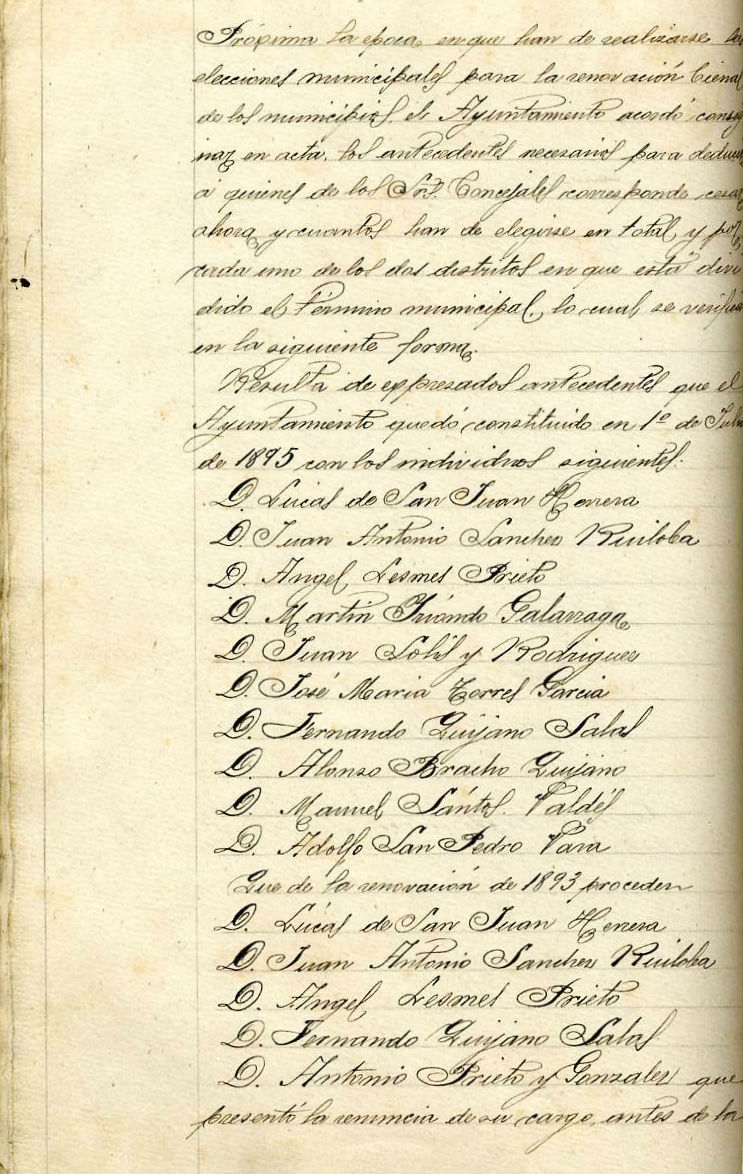 Próxima la epoca en que han de realizarse las
elecciones municipales para la renovación bienal
de los municipios, el Ayuntamiento acordó consig
nar en acta, los antecedentes necesarios para deducir
á quienes de los Srs. Concejales corresponde cesar
ahora y cuantos han de elegirse en total y por
cada uno de los dos distritos en que está divi
dido el término municipal, lo cual se verifica
en la siguiente forma.
Resulta de expresados antecedentes que el
Ayuntamiento quedó constituido en 1º de Julio
de 1895 con los individuos siguientes:
D. Lucas de San Juan Herrera
D. Juan Antonio Sanchez Ruiloba
D. Angel Lesmes Prieto
D. Martin Iriondo Galarraga
D. Juan Solis y Rodriguez
D. José Maria Torres Garcia
D. Fernando Quijano Salas
D. Alonso Bracho Quijano
D. Manuel Santos Valdés
D. Adolfo San Pedro Vara
Que de la renovación de 1893 proceden
D. Lúcas de San Juan Herrera
D. Juan Antonio Sanchez Ruiloba
D. Angel Lesmes Prieto
D. Fernando Quijano Salas
D. Antonio Prieto y Gonzalez que
presentó la renuncia de su cargo, antes de la